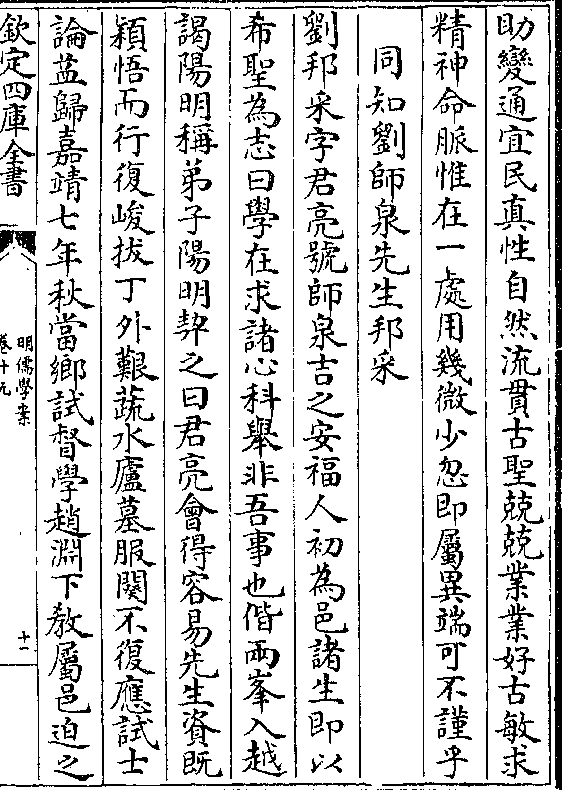 助變通宜民真性自然流貫古聖兢兢業業好古敏求
精神命脈惟在一處用幾微少忽即屬異端可不謹乎
同知劉師泉先生邦采
劉邦采字君亮號師泉吉之安福人初為邑諸生即以
希聖為志曰學在求諸心科舉非吾事也偕兩峯入越
謁陽明稱弟子陽明契之曰君亮會得容易先生資既
穎悟而行復峻拔丁外艱蔬水廬墓服闋不復應試士
論益歸嘉靖七年秋當鄉試督學趙淵下教屬邑迫之
欽定四庫全書
明儒學案
卷十九
十一